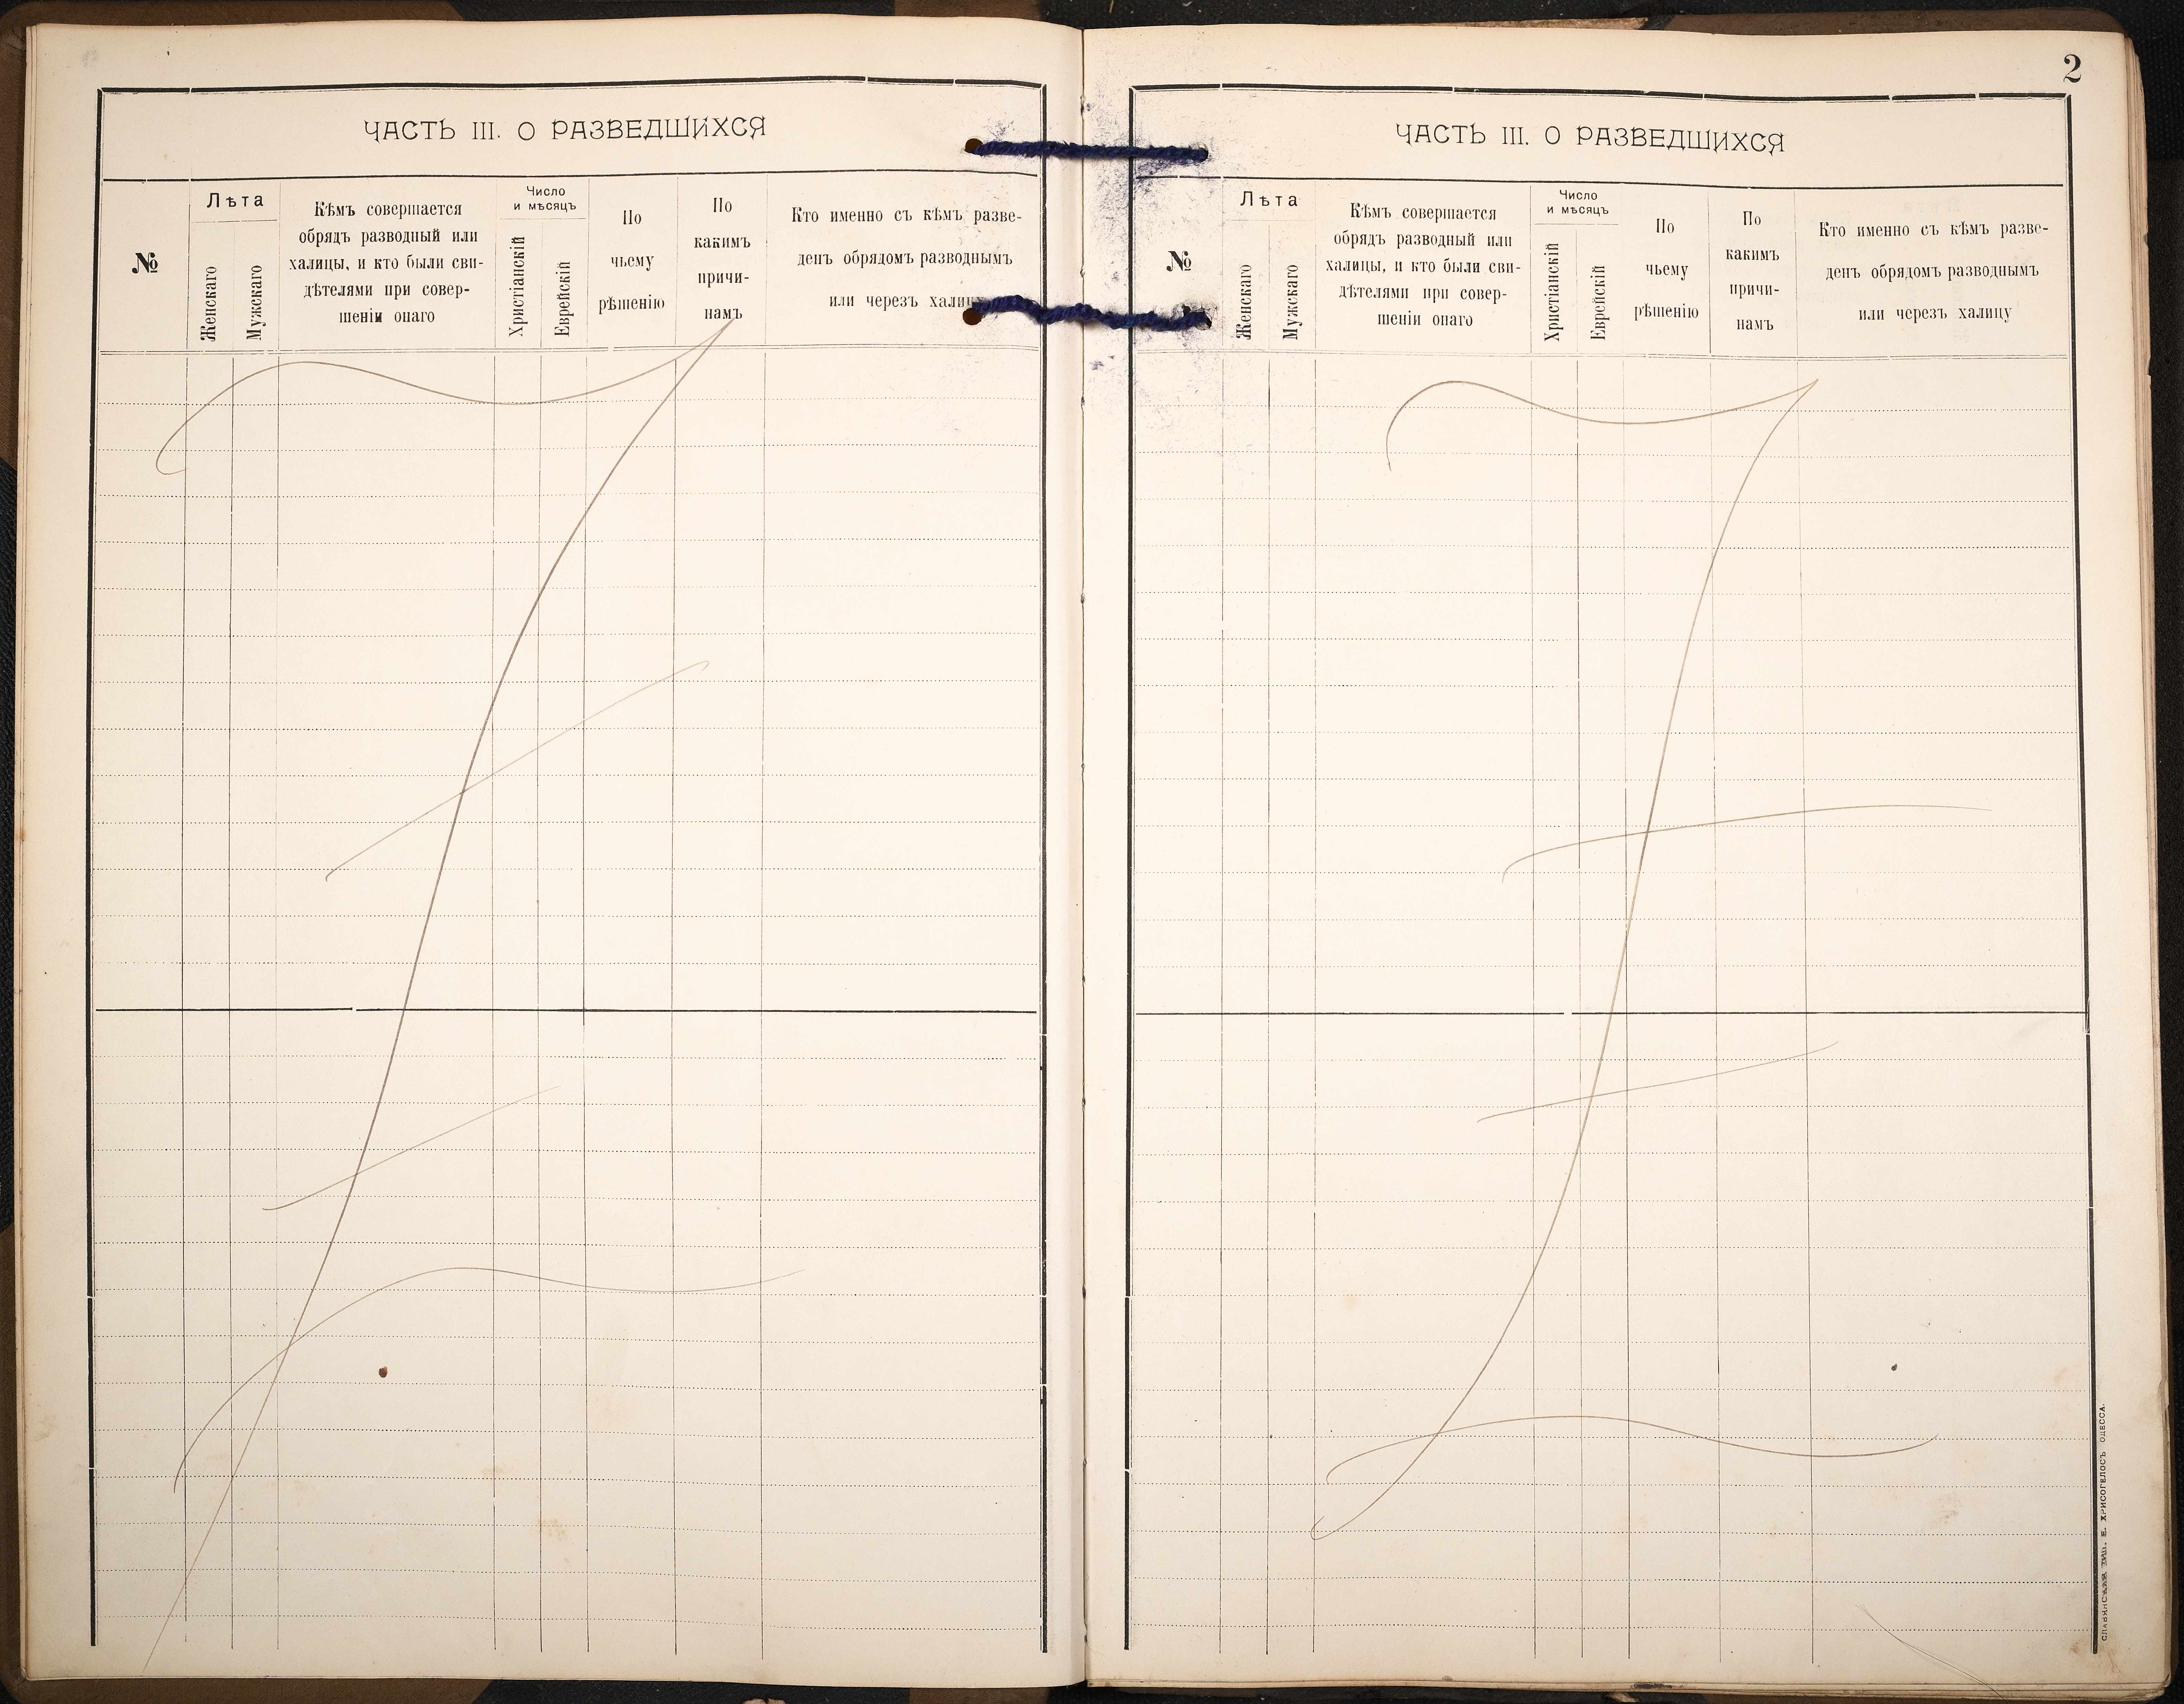 2
ЧАСТЬ III. О РАЗВЕДШИХСЯ
№
Лѣта
Женскаго
Мужскаго
Кѣмъ совершается
обрядъ разводный или
халицы, и кто были сви-
дѣтелями при совер-
шеніи онаго
Число
и мѣсяцъ
Христіанскій
Еврейскій
По
чьему
рѣшенію
По
какимъ
причи-
намъ
Кто именно съ кѣмъ разве-
денъ обрядомъ разводнымъ
или черезъ халицу
ЧАСТЬ III. О РАЗВЕДШИХСЯ
№
Лѣта
Женскаго
Мужскаго
Кѣмъ совершается
обрядъ разводный или
халицы, и кто были сви-
дѣтелями при совер-
шеніи онаго
Число
и мѣсяцъ
Христіанскій
Еврейскій
По
чьему
рѣшенію
По
какимъ
причи-
намъ
Кто именно съ кѣмъ разве-
денъ обрядомъ разводнымъ
или черезъ халицу
СЛАВЯНСКАЯ ТИП. Е. ХРИСОГЕЛОСЪ ОДЕССА.